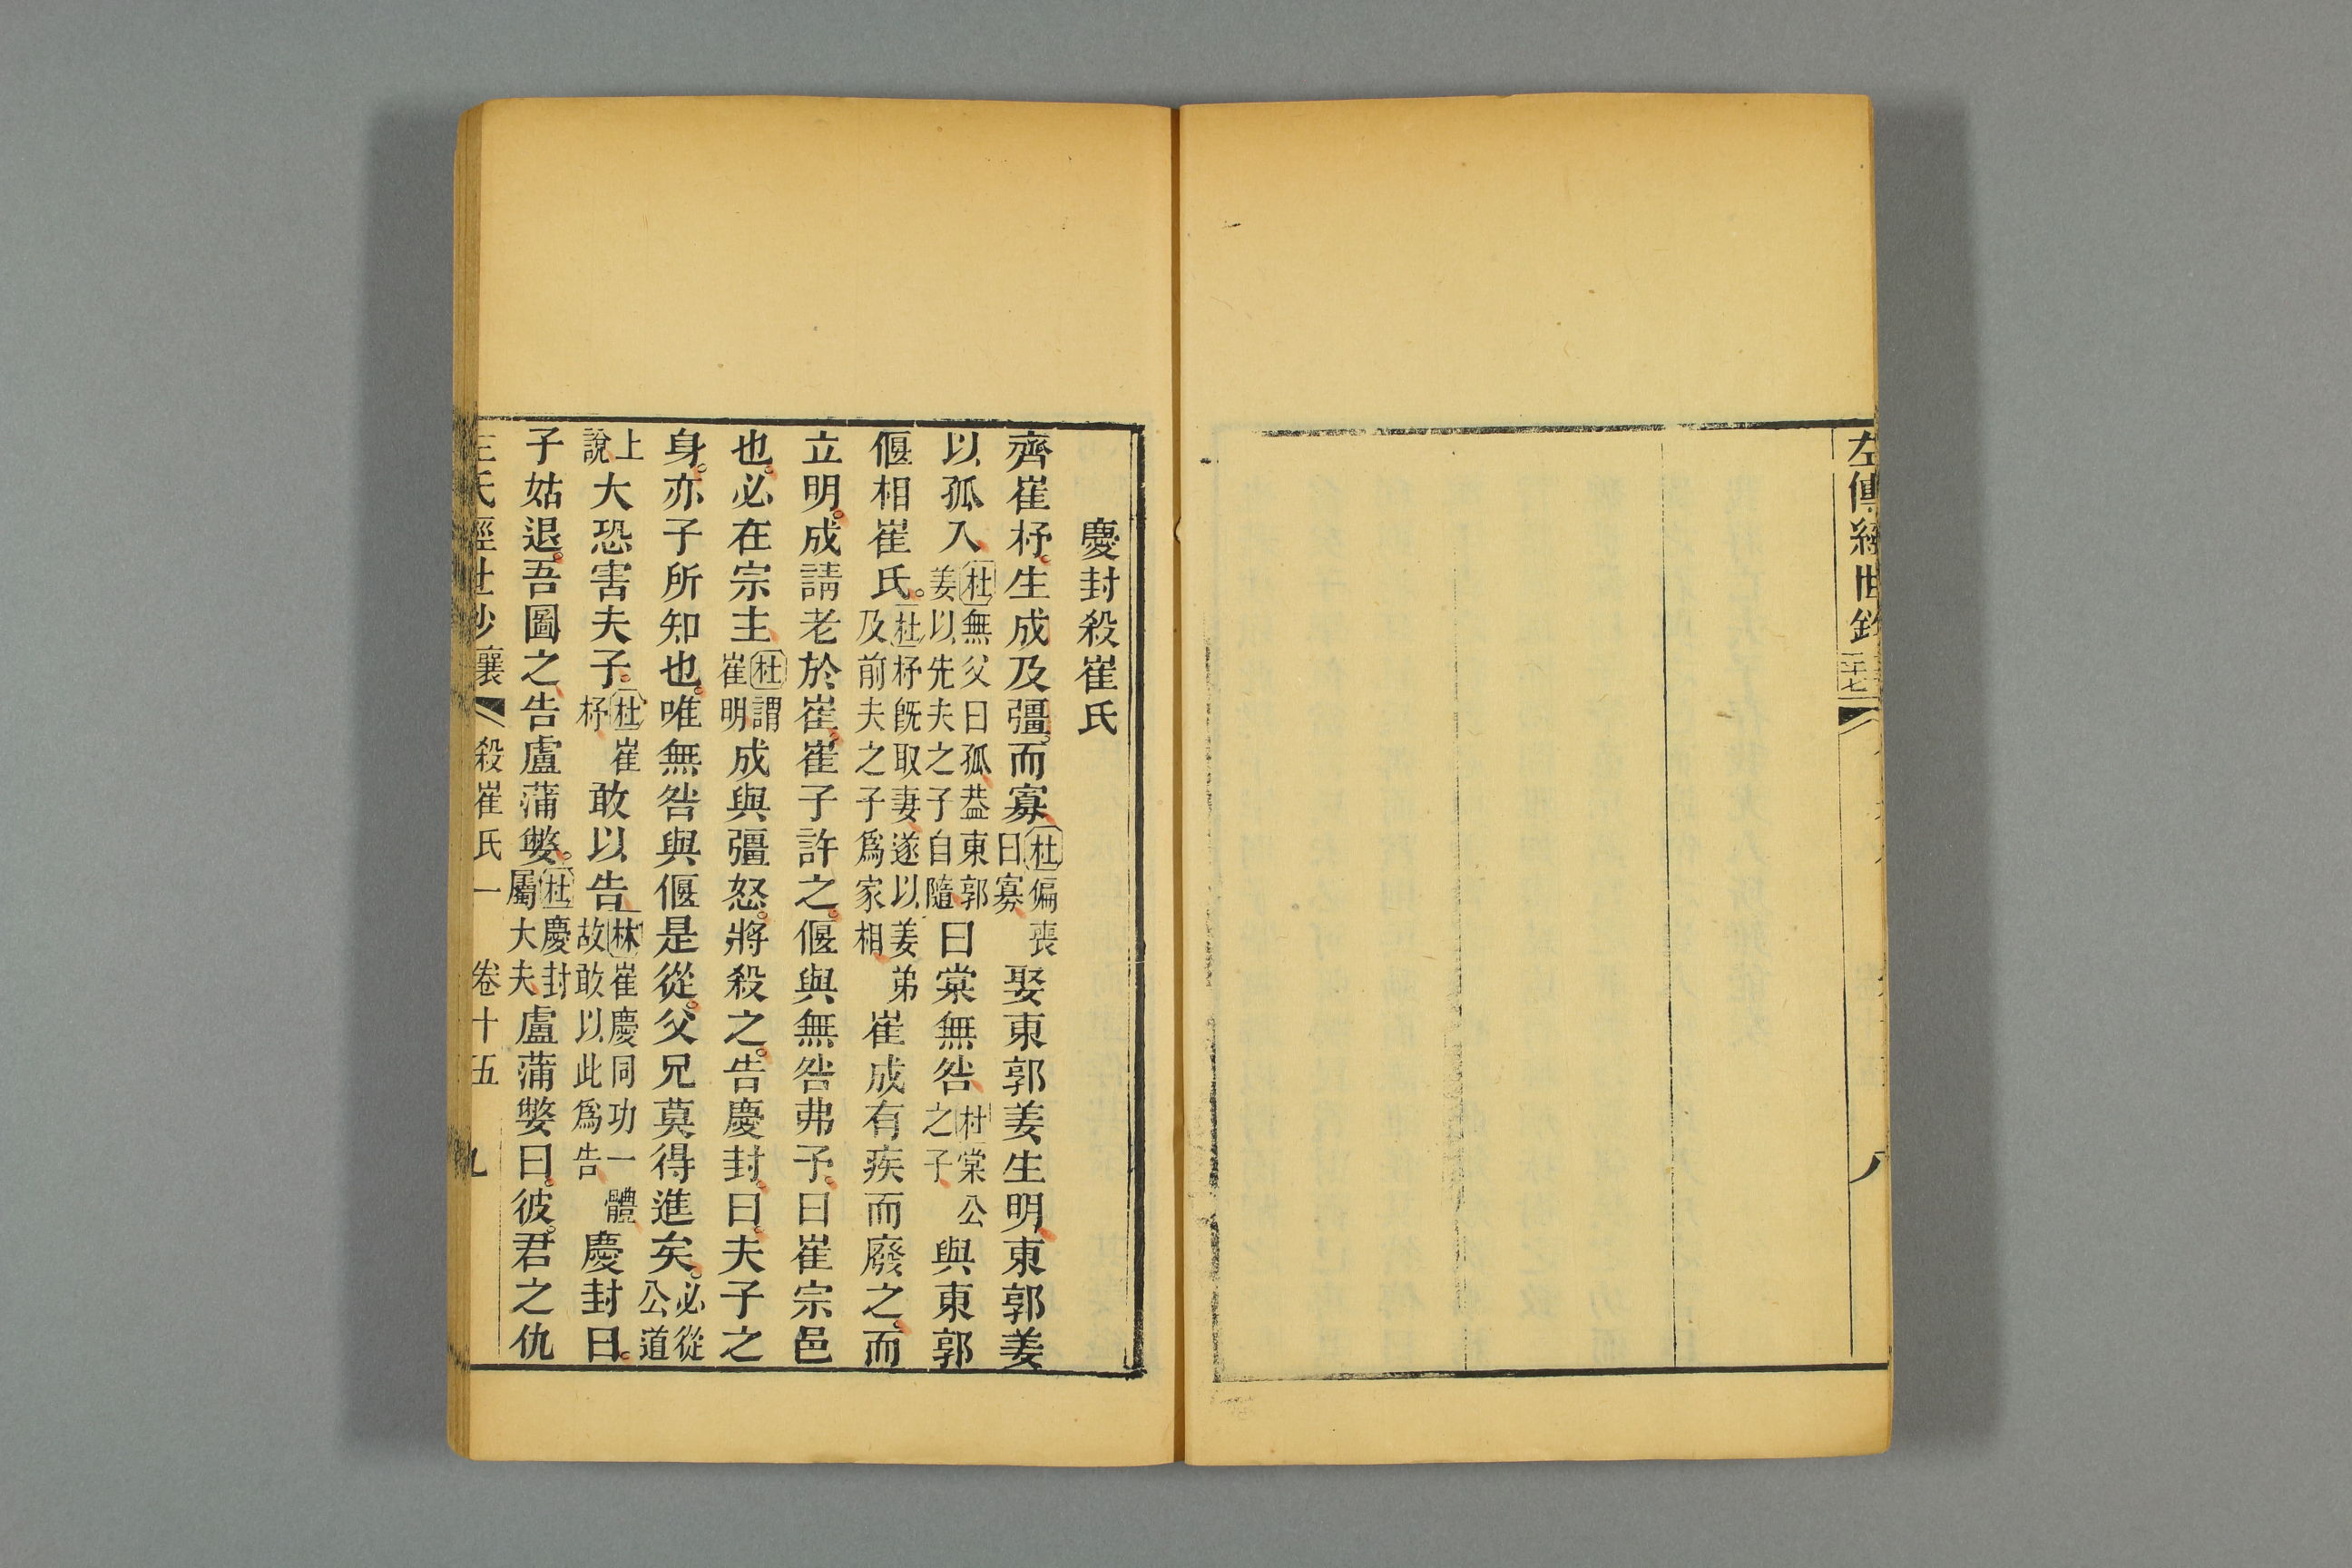 左傳經世鈔
二十七
八
慶封殺崔氏
齊崔杼生成及彊而寡杜偏喪曰寡娶東郭姜生明東郭姜
以孤入杜無父曰孤葢東郭姜以先夫之子自隨曰棠無咎杜棠公之子與東郭
偃相崔氏杜杼旣取妻遂以姜弟及前夫之子爲家相崔成有疾而廢之而
立明成請老於崔崔子許之偃與無咎弗予曰崔宗邑
也必在宗主杜謂崔明成與彊怒將殺之告慶封曰夫子之
身亦子所知也唯無咎與偃是從父兄莫得進矣必從公道
上說大恐害夫子杜崔杼敢以告林崔慶同功一體故敢以此爲告慶封曰
子姑退吾圖之告盧蒲嫳杜慶封屬大夫盧蒲嫳曰彼君之仇
氏經世鈔
襄
殺崔氏一
卷十五
九